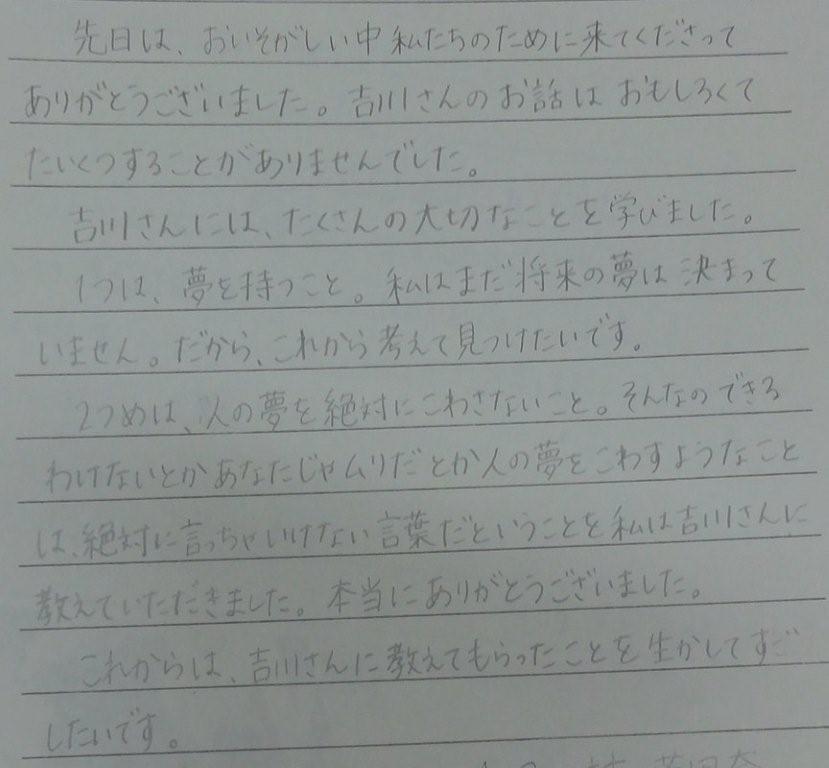 先日は、おいそがしい中私たちのために来てくださって
ありがとうございました。吉川さんのお話はおもしろくて
たいくつすることがありませんでした。
吉川さんには、たくさんの大切なことを学びました。
1つは、夢を持つこと。私はまだ将来の夢は決まって
いません。だから、これから考えて見つけたいです。
2つめは、人の夢を絶対にこわさないこと。そんなのできる
わけないとかあなたじゃムリだとか人の夢をこわすようなこと
は、絶対に言っちゃいけない言葉だということを私は吉川さんに
教えていただきました。本当にありがとうございました。
これからは、吉川さんに教えてもらったことを生かしてすご
したいです。